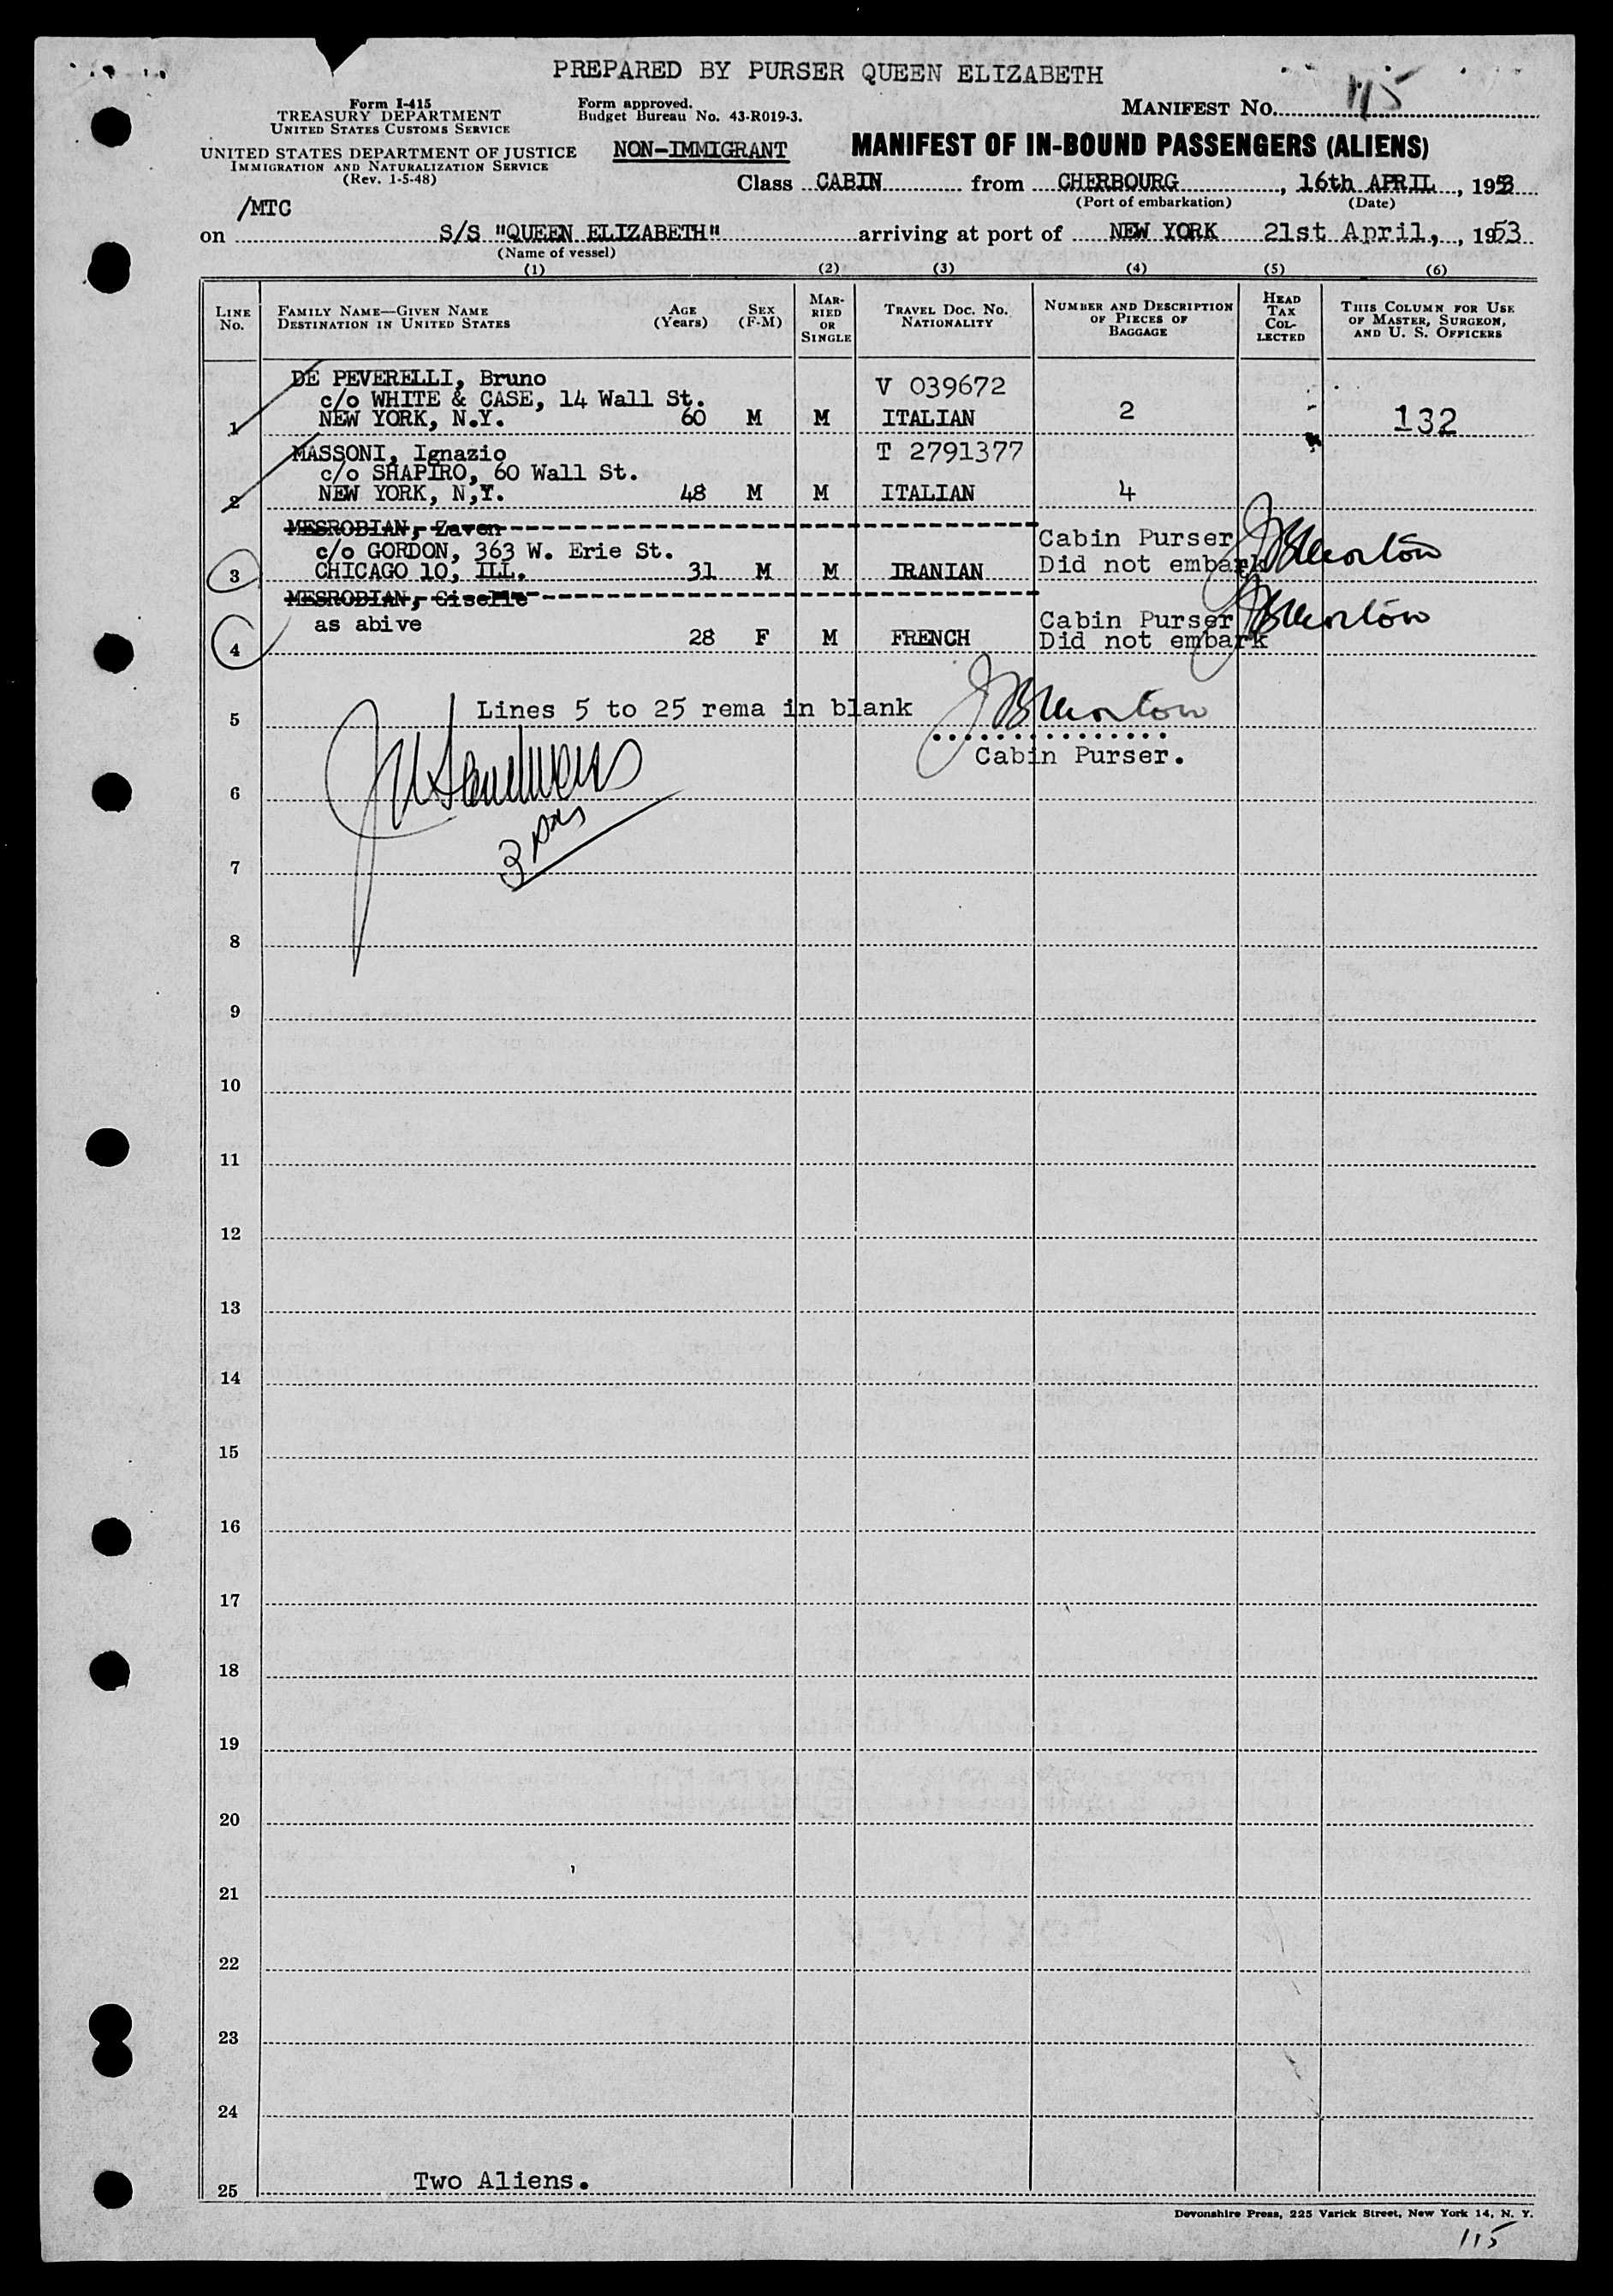 PREPARED BY PURSER QUEEN ELIZABETH
Form I-415
TREASURY DEPARTMENT
UNITED STATES CUSTOMS SERVICE
UNITED STATES DEPARTMENT OF JUSTICE
IMMIGRATION AND NATURALIZATION SERVICE
(Rev. 1-5-48)
Form approved.
Budget Bureau No. 43-R019-3.
NON-IMMIGRANT
MANIFEST NO. 115
MANIFEST OF IN-BOUND PASSENGERS (ALIENS)
Class CABIN from CHERBOURG, 16th APRIL, 1953
(Port of embarkation) (Date)
/MTC
on S/S "QUEEN ELIZABETH" arriving at port of NEW YORK 21st April, , 1953
(Name of vessel)
(1) (2) (3) (4) (5) (6)
LINE No.
FAMILY NAME—GIVEN NAME
DESTINATION IN UNITED STATES
AGE (Years)
SEX (F-M)
MARRIED OR SINGLE
TRAVEL DOC. NO.
NATIONALITY
NUMBER AND DESCRIPTION OF PIECES OF BAGGAGE
HEAD TAX COLLECTED
THIS COLUMN FOR USE OF MASTER, SURGEON, AND U. S. OFFICERS
DE PEVERELLI, Bruno V 039672
c/o WHITE & CASE, 14 Wall St.
1 NEW YORK, N.Y. 60 M M ITALIAN 2 132
MASSONI, Ignazio T 2791377
c/o SHAPIRO, 60 Wall St.
2 NEW YORK, N,Y. 48 M M ITALIAN 4
MESROBIAN, Zaven Cabin Purser
c/o GORDON, 363 W. Erie St.
3 CHICAGO 10, ILL. 31 M M IRANIAN Did not embark
MESROBIAN, Giselle Cabin Purser
as abive
4 28 F M FRENCH Did not embark
5 Lines 5 to 25 rema in blank
Cabin Purser.
6
7
8
9
10
11
12
13
14
15
16
17
18
19
20
21
22
23
24
25 Two Aliens.
Devonshire Press, 225 Varick Street, New York 14, N. Y.
115